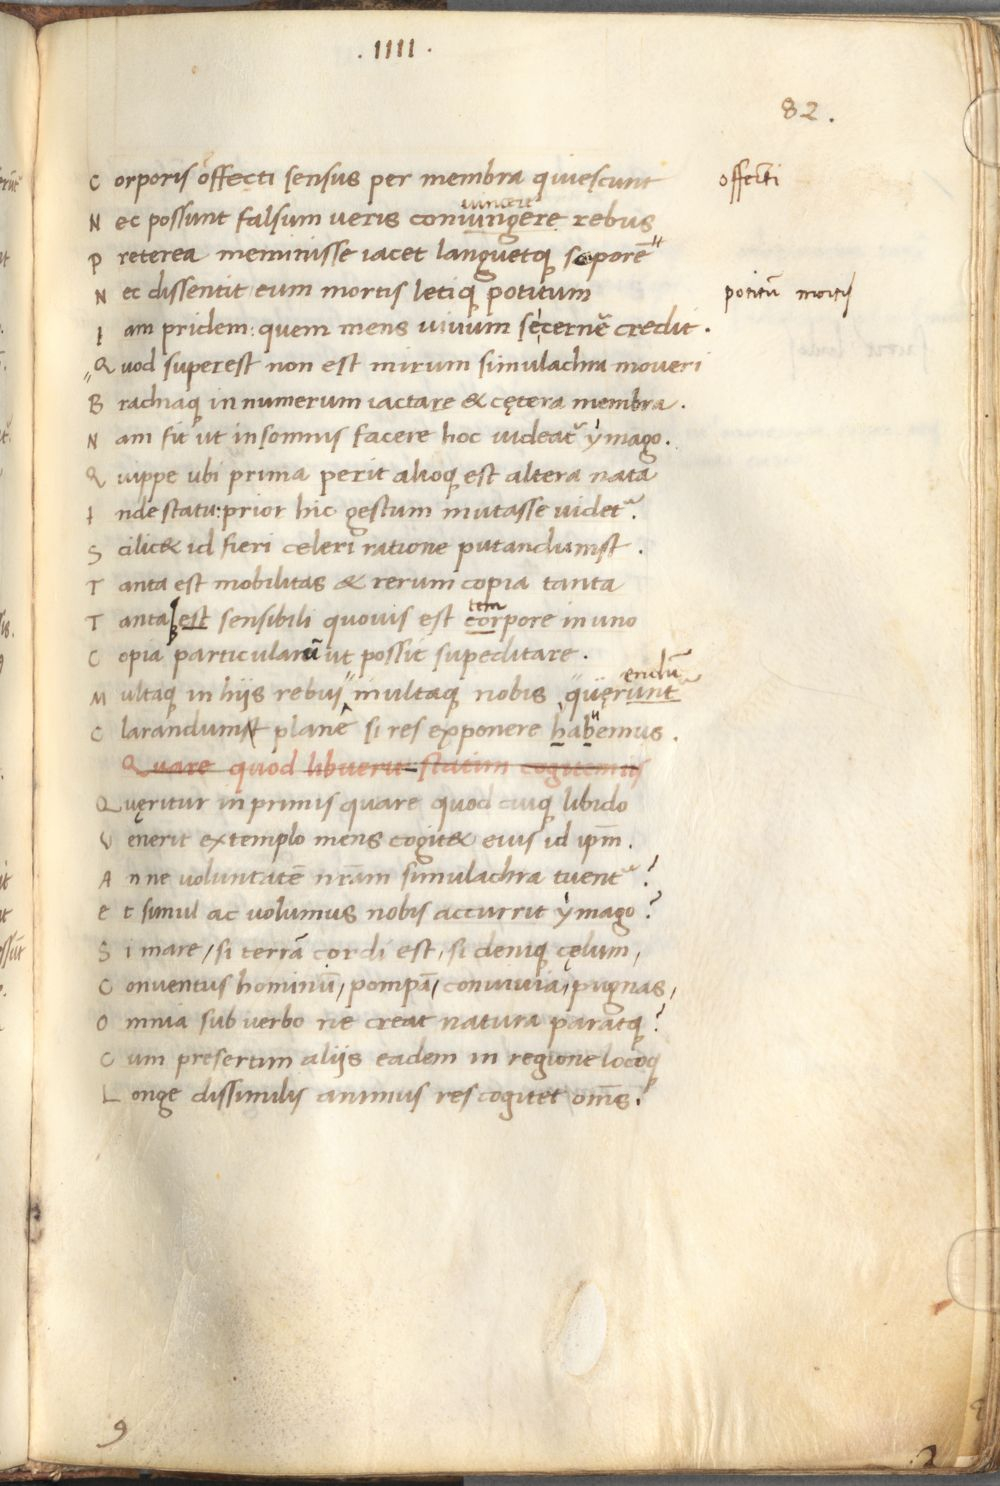 . IIII .
82 .
C orporis offecti sensus per membra quiescunt
offecti
N ec possunt falsum veris coniungere rebus
vincere
P reterea meminisse iacet languetq soporē
N ec dissentit eum mortis letiq potitum
potitū mortis
I am pridem: quem mens vivum secernĕ credit .
Q uod superest non est mirum simulachra moveri
B rachiaq in numerum iactare & cętera membra .
N am fit ut in somnis facere hoc videat ymago .
Q uippe ubi prima perit alioq est altera nata
I nde statu: prior hic gestum mutasse videt .
S cilic& id fieri celeri ratione putandumst .
T anta est mobilitas & rerum copia tanta
T antaq est sensibili quovis est corpore in uno
tem
C opia particularū ut possit supeditare .
M ultaq in hiis rebus multaq nobis quęrunt
endū
C larandumst plane si res exponere habemus .
Quare quod libuerit statim cogitemus
Q uęritur in primis quare quod cuiq libido
V enerit extemplo mens cogit& eius id ipm̄ .
A n ne voluntatē nr̄am simulachra tuent ?
e t simul ac volumus nobis accurrit ymago ?
S i mare / si terrā cordi est, si deniq cęlum,
C onventus hominū, pompā, convivia, pugnas,
O mnia sub verbo ne creat natura paratq ?
C um presertim aliis eadem in regione locoq
L onge dissimilis animus res cogitet om̄s ?
9